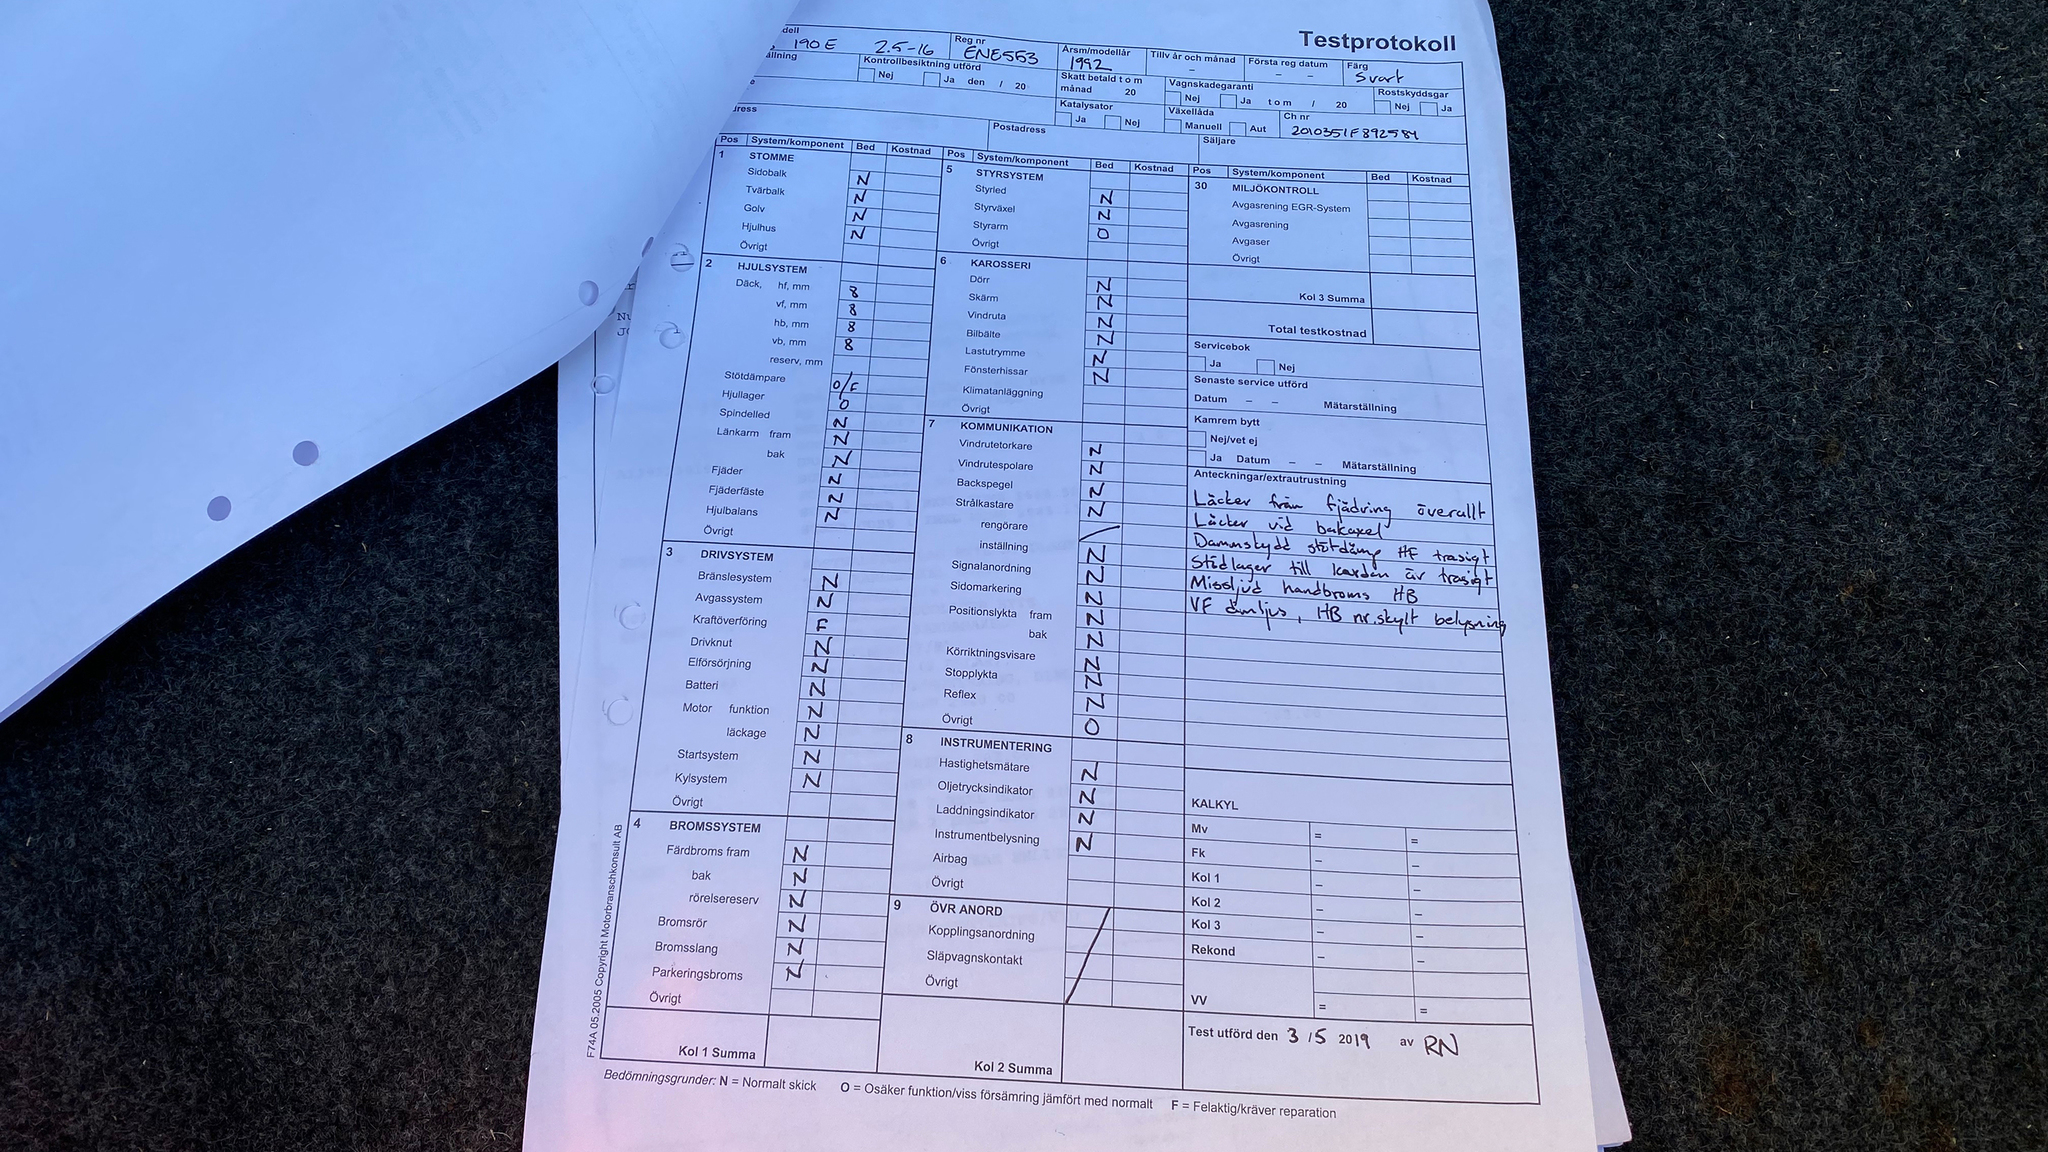 Testprotokoll
dell
190 E 2.5-16
Reg nr
ENE553
Årsm/modellår
1992
Tillv år och månad
–
Första reg datum
– –
Färg
Svart
ällning
Kontrollbesiktning utförd
Nej Ja den / 20
Skatt betald t o m
månad 20
Vagnskadegaranti
Nej Ja t o m / 20
Rostskyddsgar
Nej Ja
Katalysator
Ja Nej
Växellåda
Manuell Aut
Ch nr
2010351F892584
dress
Postadress
Säljare
Pos System/komponent Bed Kostnad
1 STOMME
Sidobalk N
Tvärbalk N
Golv N
Hjulhus N
Övrigt
2 HJULSYSTEM
Däck, hf, mm 8
vf, mm 8
hb, mm 8
vb, mm 8
reserv, mm
Stötdämpare O/F
Hjullager O
Spindelled N
Länkarm fram N
bak N
Fjäder N
Fjäderfäste N
Hjulbalans N
Övrigt
3 DRIVSYSTEM
Bränslesystem N
Avgassystem N
Kraftöverföring F
Drivknut N
Elförsörjning N
Batteri N
Motor funktion N
läckage N
Startsystem N
Kylsystem N
Övrigt
4 BROMSSYSTEM
Färdbroms fram N
bak N
rörelsereserv N
Bromsrör N
Bromsslang N
Parkeringsbroms N
Övrigt
Kol 1 Summa
Pos System/komponent Bed Kostnad
5 STYRSYSTEM
Styrled N
Styrväxel N
Styrarm O
Övrigt
6 KAROSSERI
Dörr N
Skärm N
Vindruta N
Bilbälte N
Lastutrymme N
Fönsterhissar N
Klimatanläggning
Övrigt
7 KOMMUNIKATION
Vindrutetorkare N
Vindrutespolare N
Backspegel N
Strålkastare N
rengörare /
inställning N
Signalanordning N
Sidomarkering N
Positionslykta fram N
bak N
Körriktningsvisare N
Stopplykta N
Reflex N
Övrigt O
8 INSTRUMENTERING
Hastighetsmätare N
Oljetrycksindikator N
Laddningsindikator N
Instrumentbelysning N
Airbag
Övrigt
9 ÖVR ANORD
Kopplingsanordning
Släpvagnskontakt
Övrigt
Kol 2 Summa
Pos System/komponent Bed Kostnad
30 MILJÖKONTROLL
Avgasrening EGR-System
Avgasrening
Avgaser
Övrigt
Kol 3 Summa
Total testkostnad
Servicebok
Ja Nej
Senaste service utförd
Datum – – Mätarställning
Kamrem bytt
Nej/vet ej
Ja Datum – – Mätarställning
Anteckningar/extrautrustning
Läcker från fjädring överallt
Läcker vid bakaxel
Dammskydd stötdämp HF trasigt
Stödlager till kardan är trasigt
Missljud handbroms HB
VF dimljus, HB nr.skylt belysning
KALKYL
Mv = =
Fk – –
Kol 1 – –
Kol 2 – –
Kol 3 – –
Rekond – –
VV = =
Test utförd den 3 / 5 2019 av RN
F74A 05.2005 Copyright Motorbranschkonsult AB
Bedömningsgrunder: N = Normalt skick O = Osäker funktion/viss försämring jämfört med normalt F = Felaktig/kräver reparation